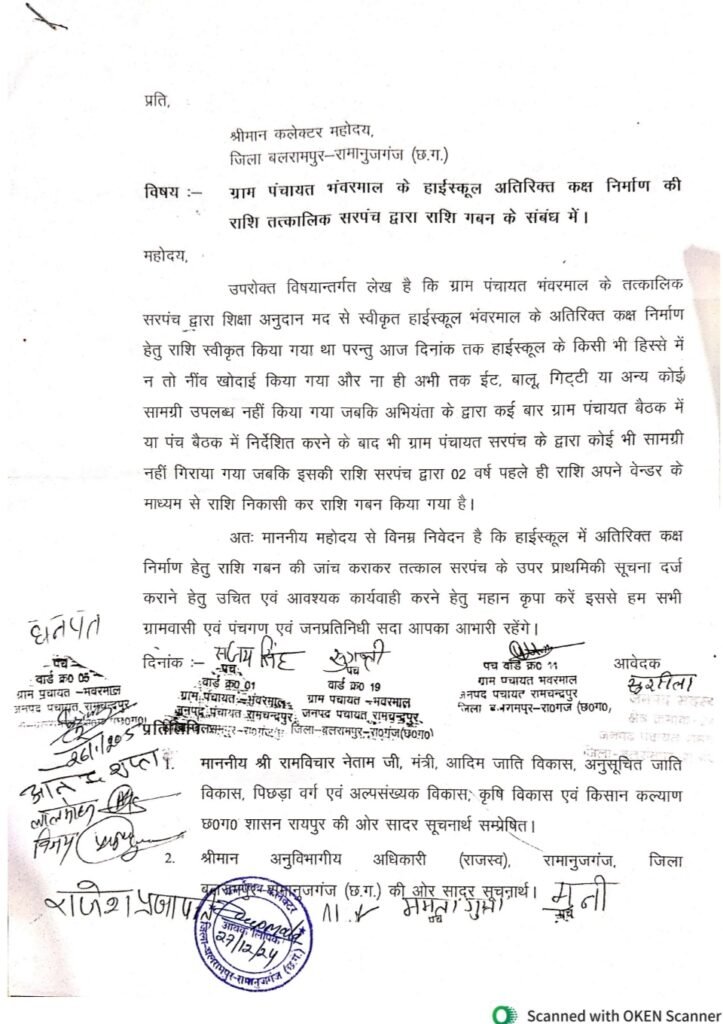 प्रति,
श्रीमान कलेक्टर महोदय,
जिला बलरामपुर–रामानुजगंज (छ.ग.)
विषय :– ग्राम पंचायत भंवरमाल के हाईस्कूल अतिरिक्त कक्ष निर्माण की
राशि तत्कालिक सरपंच द्वारा राशि गबन के संबंध में।
महोदय,
उपरोक्त विषयान्तर्गत लेख है कि ग्राम पंचायत भंवरमाल के तत्कालिक
सरपंच द्वारा शिक्षा अनुदान मद से स्वीकृत हाईस्कूल भंवरमाल के अतिरिक्त कक्ष निर्माण
हेतु राशि स्वीकृत किया गया था परन्तु आज दिनांक तक हाईस्कूल के किसी भी हिस्से में
न तो नींव खोदाई किया गया और ना ही अभी तक ईट, बालू, गिट्टी या अन्य कोई
सामग्री उपलब्ध नहीं किया गया जबकि अभियंता के द्वारा कई बार ग्राम पंचायत बैठक में
या पंच बैठक में निर्देशित करने के बाद भी ग्राम पंचायत सरपंच के द्वारा कोई भी सामग्री
नहीं गिराया गया जबकि इसकी राशि सरपंच द्वारा 02 वर्ष पहले ही राशि अपने वेन्डर के
माध्यम से राशि निकासी कर राशि गबन किया गया है।
अतः माननीय महोदय से विनम्र निवेदन है कि हाईस्कूल में अतिरिक्त कक्ष
निर्माण हेतु राशि गबन की जांच कराकर तत्काल सरपंच के उपर प्राथमिकी सूचना दर्ज
कराने हेतु उचित एवं आवश्यक कार्यवाही करने हेतु महान कृपा करें इससे हम सभी
ग्रामवासी एवं पंचगण एवं जनप्रतिनिधी सदा आपका आभारी रहेंगे।
धनपत
दिनांक :– संजय सिंह
आवेदक
सुशीला
पंच
वार्ड क्र0 05
ग्राम पंचायत –भवरमाल
जनपद पंचायत रामचन्द्रपुर
पंच
वार्ड क्र0 01
ग्राम पंचायत –भंवरमाल
जनपद पंचायत रामचन्द्रपुर
वार्ड क्र0 19
ग्राम पंचायत –भवरमाल
जनपद पंचायत रामचन्द्रपुर
जिला-बलरामपुर-रा०गंज(छ०ग०)
पंच वार्ड क्र0 11
ग्राम पंचायत भवरमाल
जनपद पंचायत रामचन्द्रपुर
जिला बलरामपुर-रा०गंज (छ०ग०)
प्रतिलिपि
1. माननीय श्री रामविचार नेताम जी, मंत्री, आदिम जाति विकास, अनुसूचित जाति
विकास, पिछड़ा वर्ग एवं अल्पसंख्यक विकास, कृषि विकास एवं किसान कल्याण
छ0ग0 शासन रायपुर की ओर सादर सूचनार्थ सम्प्रेषित।
आनन्द गुप्ता
लालमोहन
विनय
2. श्रीमान अनुविभागीय अधिकारी (राजस्व), रामानुजगंज, जिला
बलरामपुर–रामानुजगंज (छ.ग.) की ओर सादर सूचनार्थ।
राजेश प्रजापति
ममता गुप्ता
पंच
मुनी
पंच
आवक लिपिक
27/12/24
जिला-बलरामपुर-रामानुजगंज (छ.ग.)
Scanned with OKEN Scanner